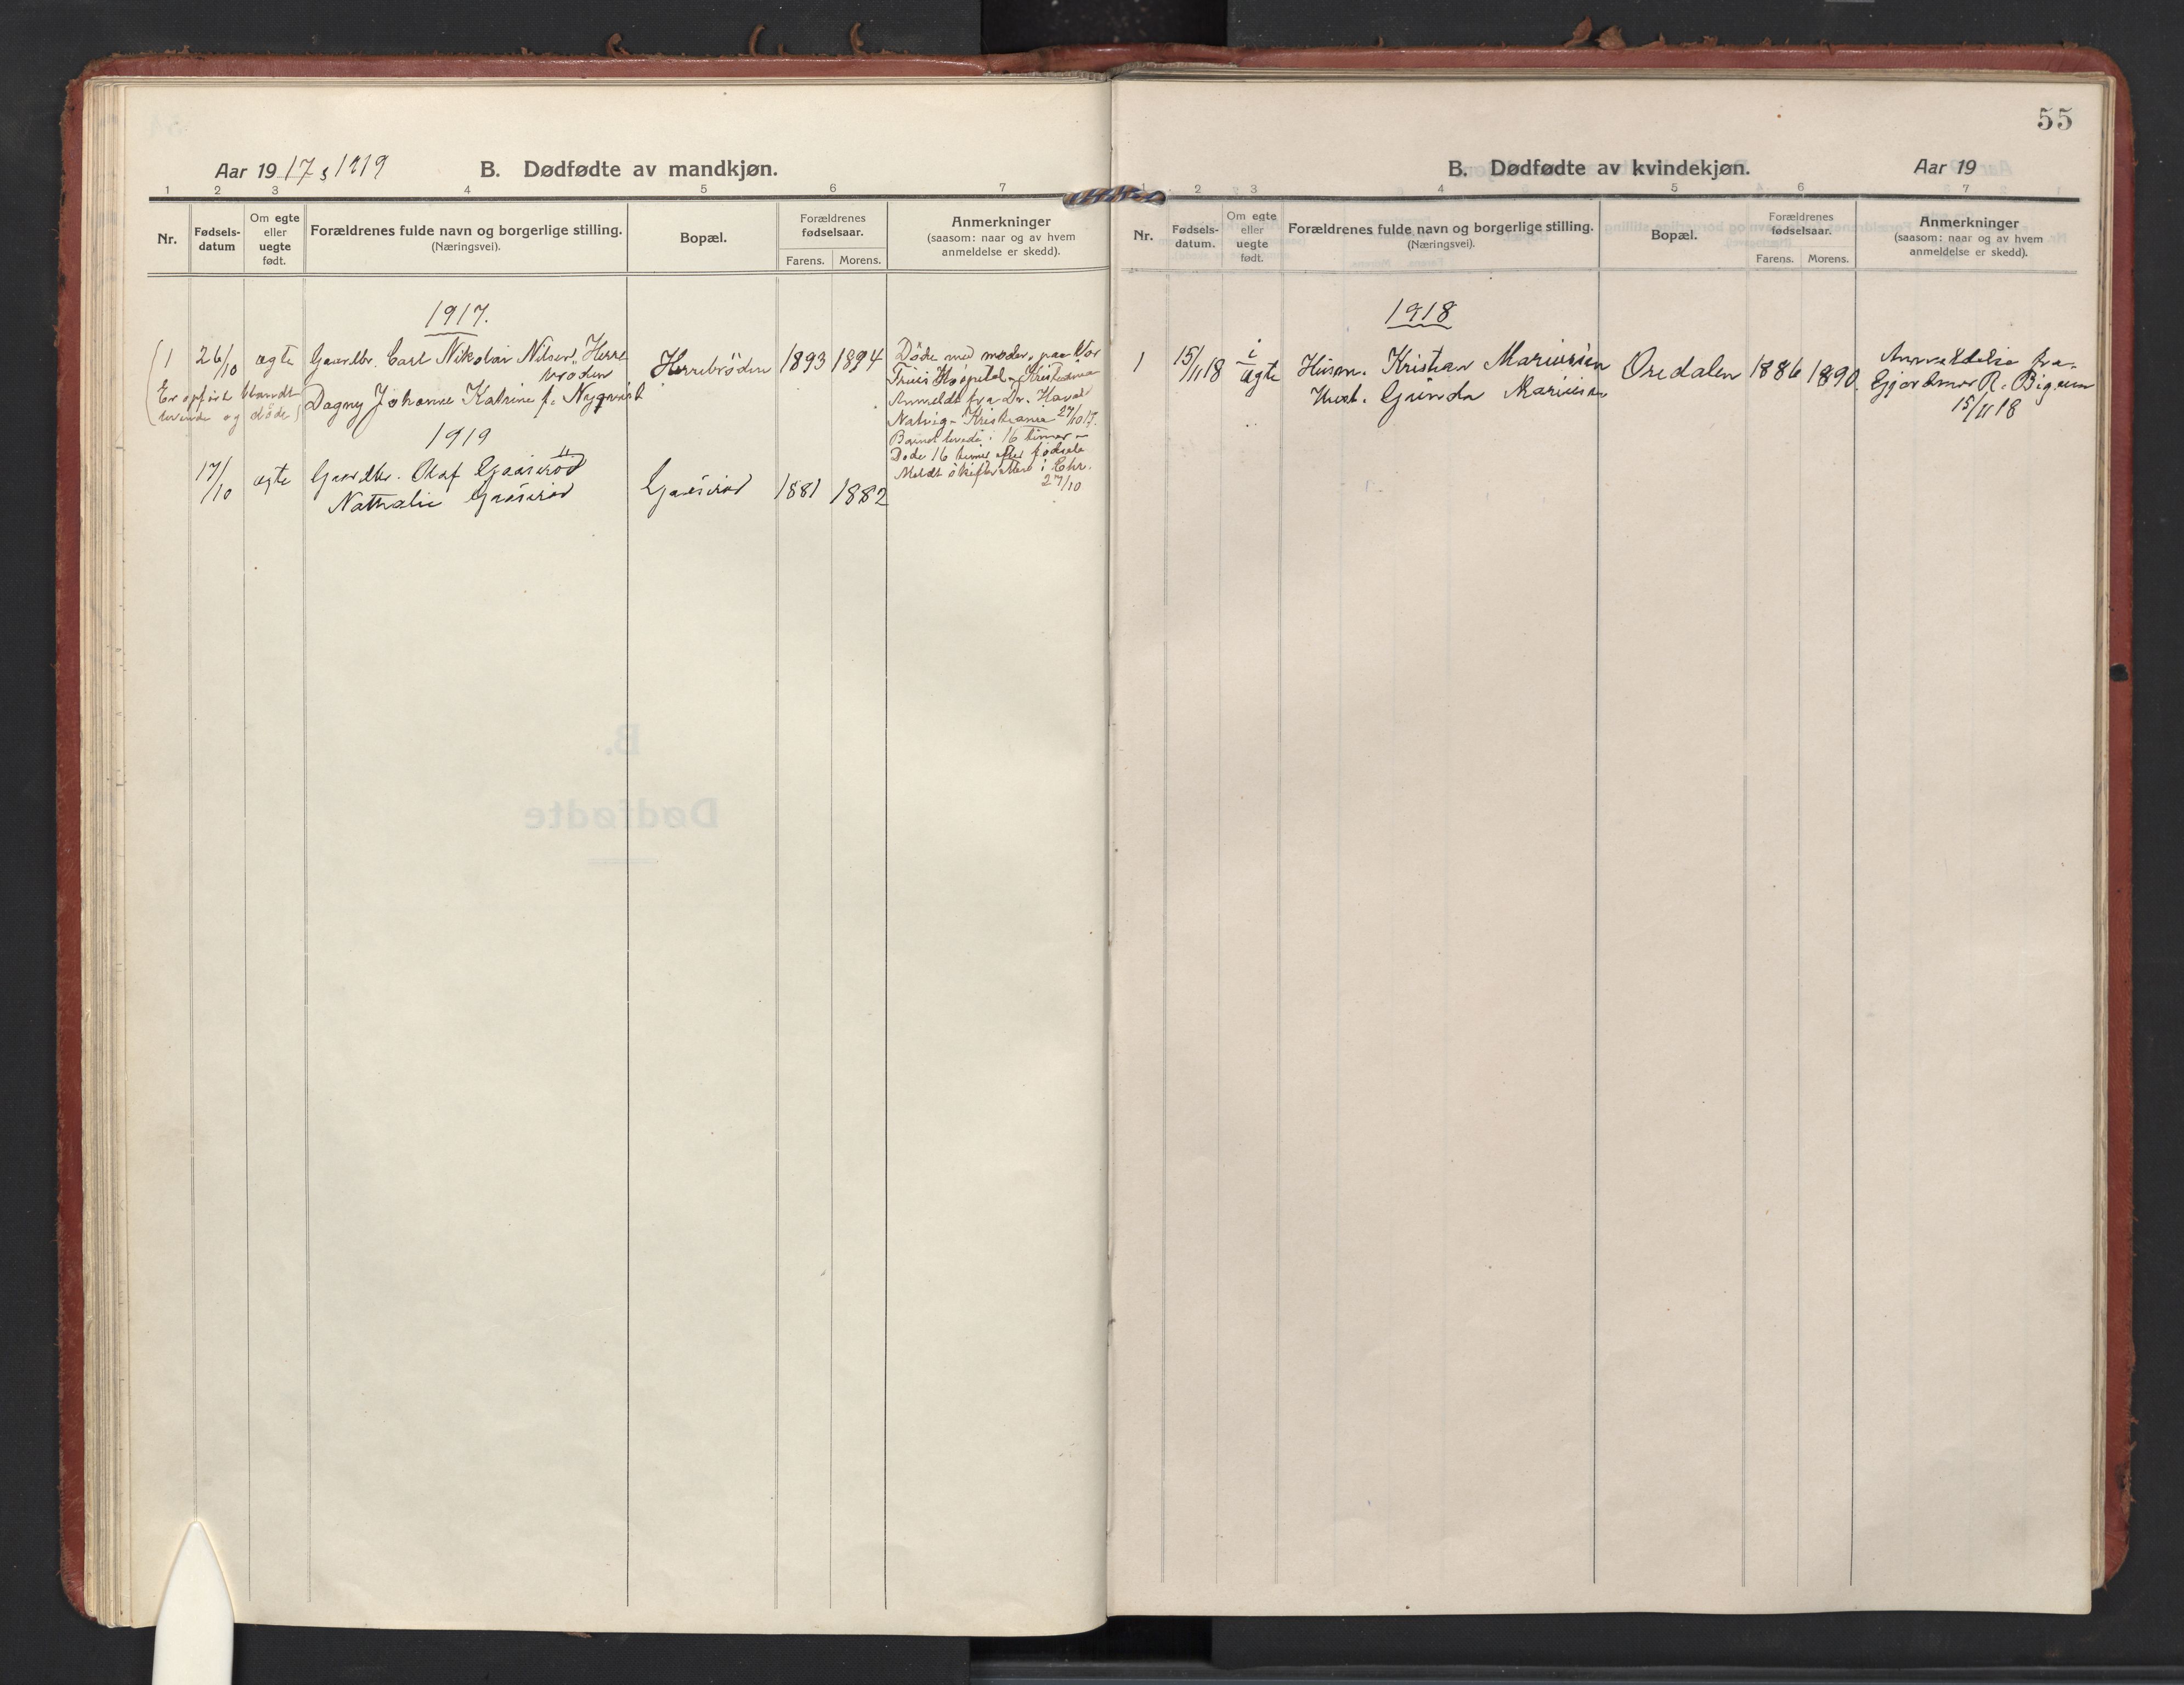 Aar 1917, 1919
B. Dødfødte av mandkjøn.
1 2 3 4 5 6 7
Nr.
Fødsels-
datum
Om egte
eller
uegte
født.
Forældrenes fulde navn og borgerlige stilling.
(Næringsvei).
Bopæl.
Forældrenes
fødselsaar.
Farens. Morens.
Anmerkninger
(saasom: naar og av hvem
anmeldelse er skedd).
1917.
1 26/10 ægte Gaardbr. Carl Nikolai Nilsen, Herre
brøden
Dagny Johanne Katrine f. Nygaard
Er opført blandt
levende og døde
Herrebrøden 1893 1894
Døde med moder, paa Vor
Frues Hospital - Kristiania
Anmeldt fra Dr. Harald
Natvig - Kristiania 27/10 17.
Barnet levede i 16 timer -
Døde 16 timer efter fødsele
Meldt skifteretten i Chr.
27/10
1919
17/10 ægte Gaardbr. Olaf Gaaserød
Nathalie Gaaserød
Gaaserød 1881 1882
55
B. Dødfødte av kvindekjøn.
Aar 19
1 2 3 4 5 6 7
Nr.
Fødsels-
datum.
Om egte
eller
uegte
født.
Forældrenes fulde navn og borgerlige stilling.
(Næringsvei).
Bopæl.
Forældrenes
fødselsaar.
Farens. Morens.
Anmerkninger
(saasom: naar og av hvem
anmeldelse er skedd).
1918
1 15/11 18 i
ægte
Husm. Kristian Mariussen
Hust. Gunda Mariussen
Oredalen 1886 1890
Anmeldelse fra
R.
15/11 18